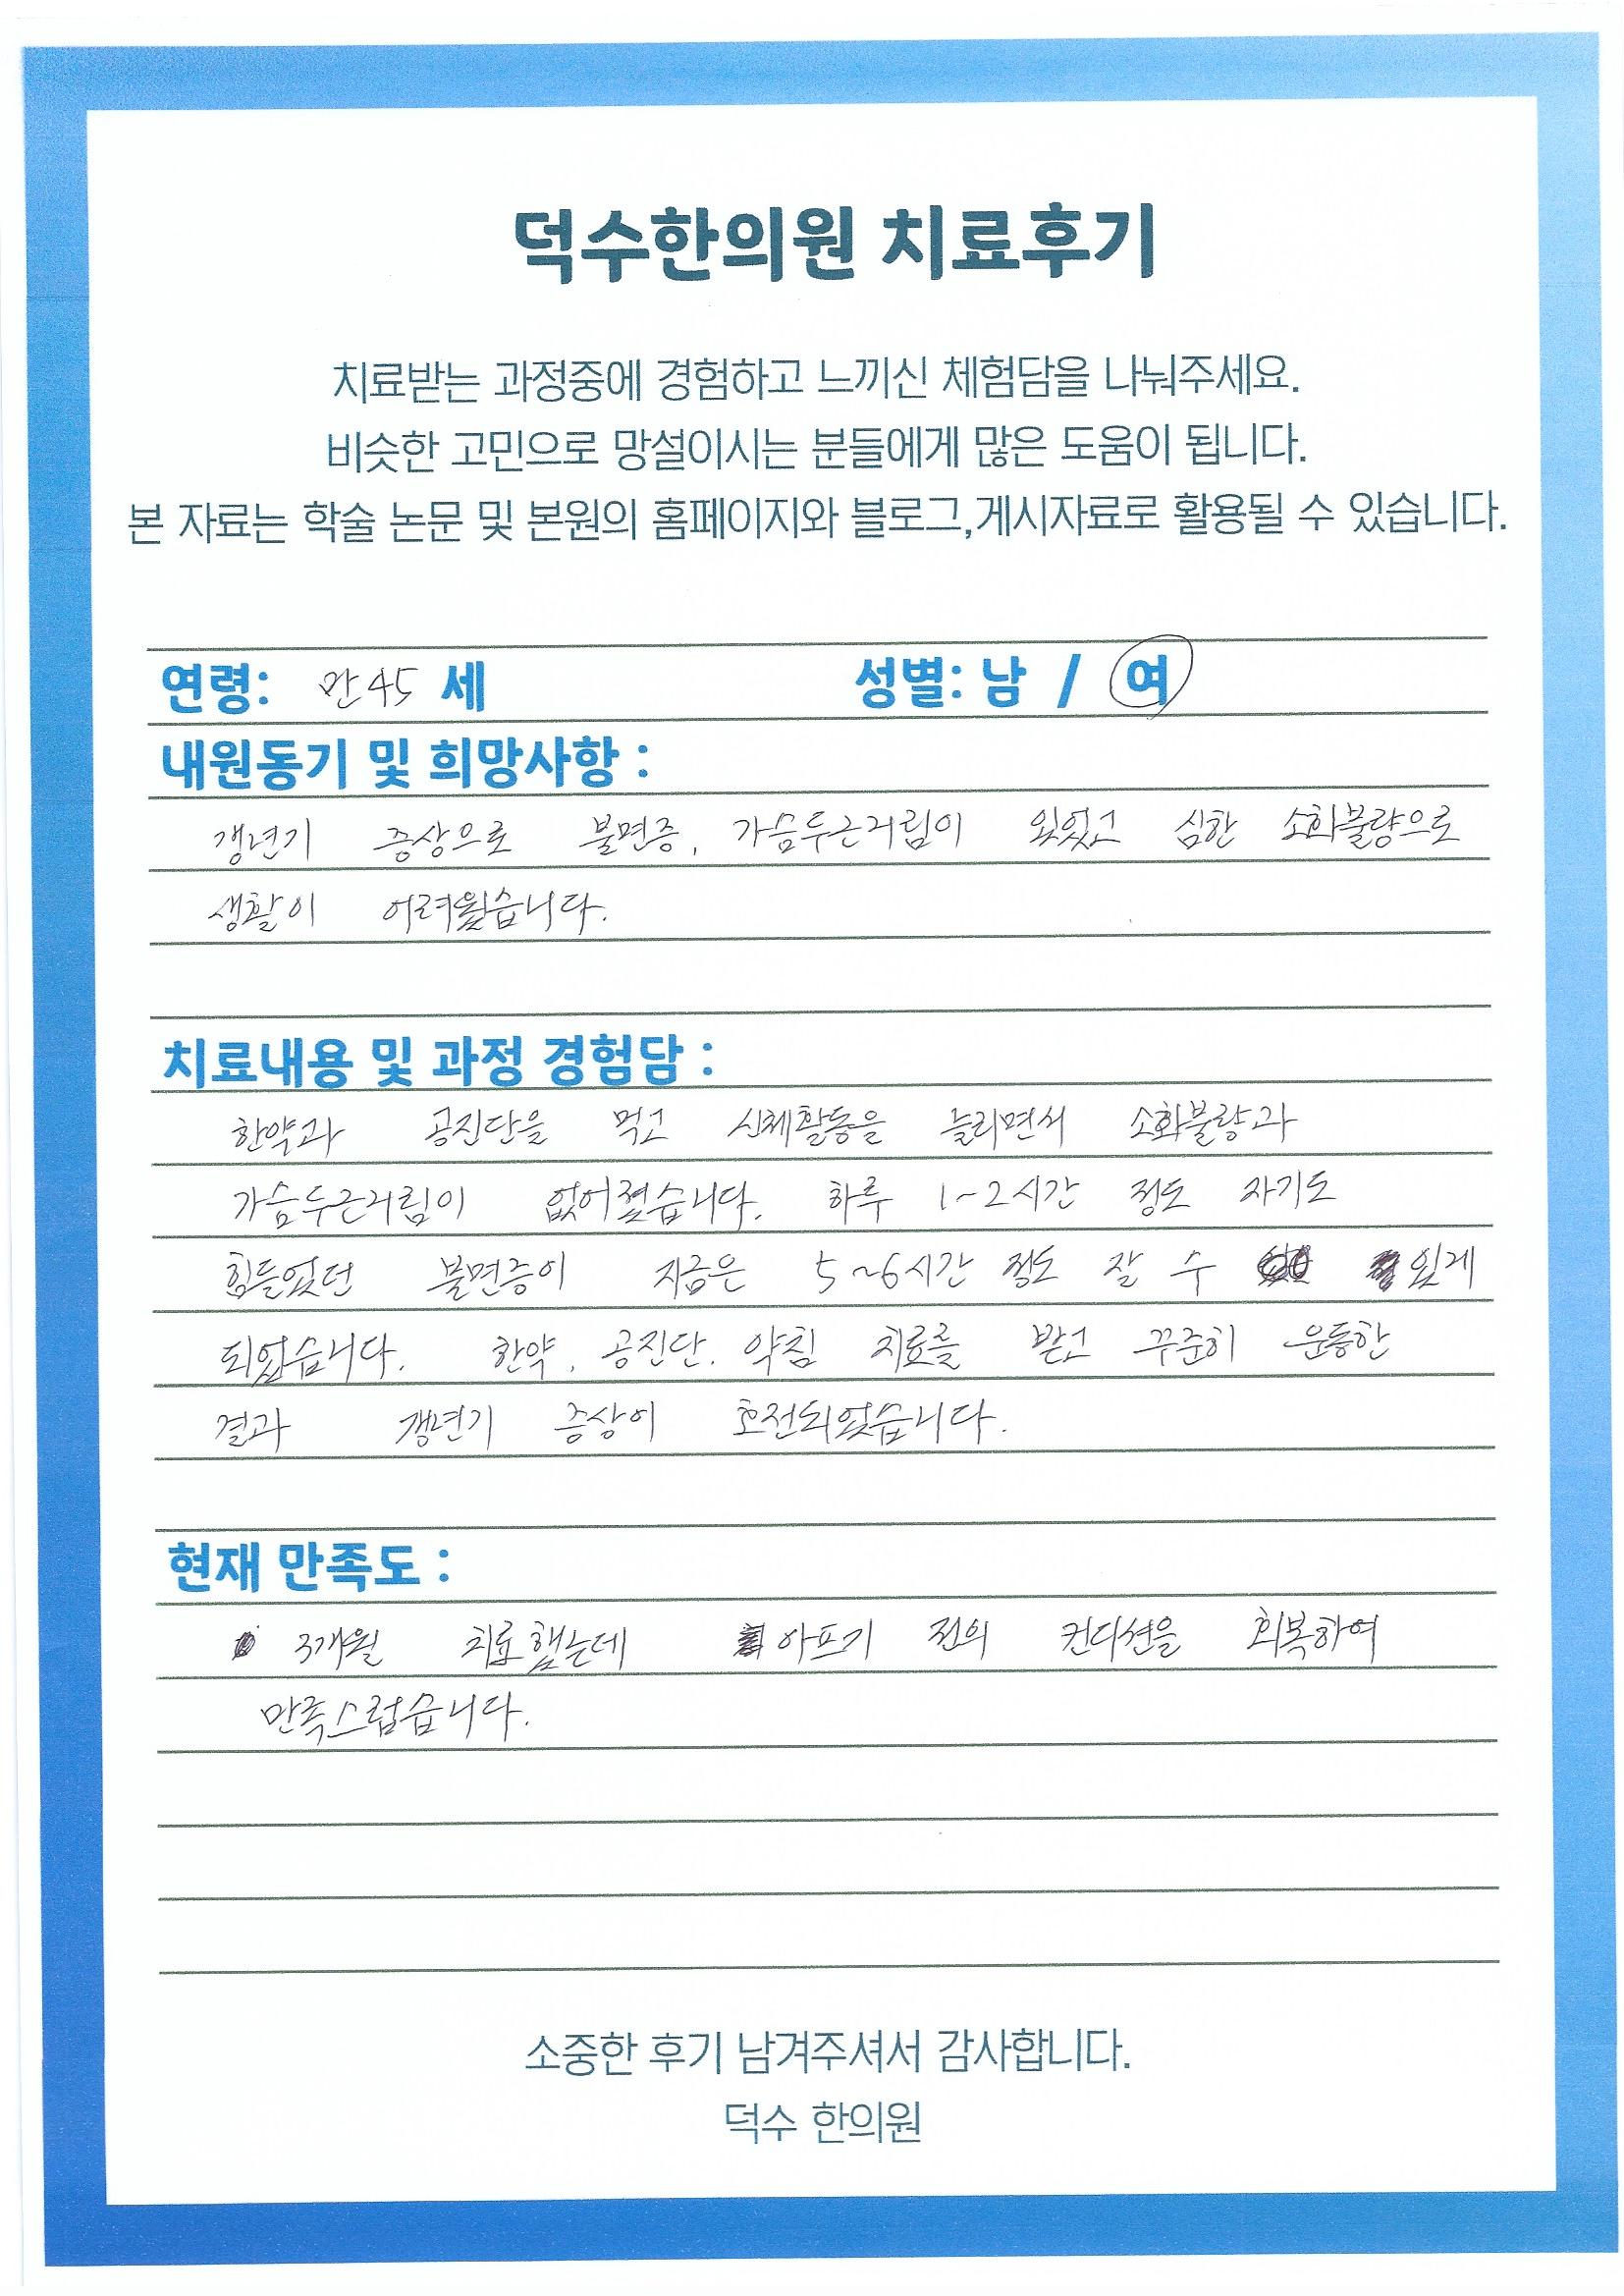 덕수한의원 치료후기
치료받는 과정중에 경험하고 느끼신 체험담을 나눠주세요.
비슷한 고민으로 망설이시는 분들에게 많은 도움이 됩니다.
본 자료는 학술 논문 및 본원의 홈페이지와 블로그,게시자료로 활용될 수 있습니다.
연령: 만 45 세 성별: 남 / 여
내원동기 및 희망사항 :
갱년기 증상으로 불면증, 가슴두근거림이 있었고 심한 소화불량으로
생활이 어려웠습니다.
치료내용 및 과정 경험담 :
한약과 공진단을 먹고 신체활동을 늘리면서 소화불량과
가슴두근거림이 없어졌습니다. 하루 1~2시간 정도 자기도
힘들었던 불면증이 지금은 5~6시간 정도 잘 수 있게
되었습니다. 한약, 공진단. 약침 치료를 받고 꾸준히 운동한
결과 갱년기 증상이 호전되었습니다.
현재 만족도 :
3개월 치료했는데 아프기 전의 컨디션을 회복하여
만족스럽습니다.
소중한 후기 남겨주셔서 감사합니다.
덕수 한의원